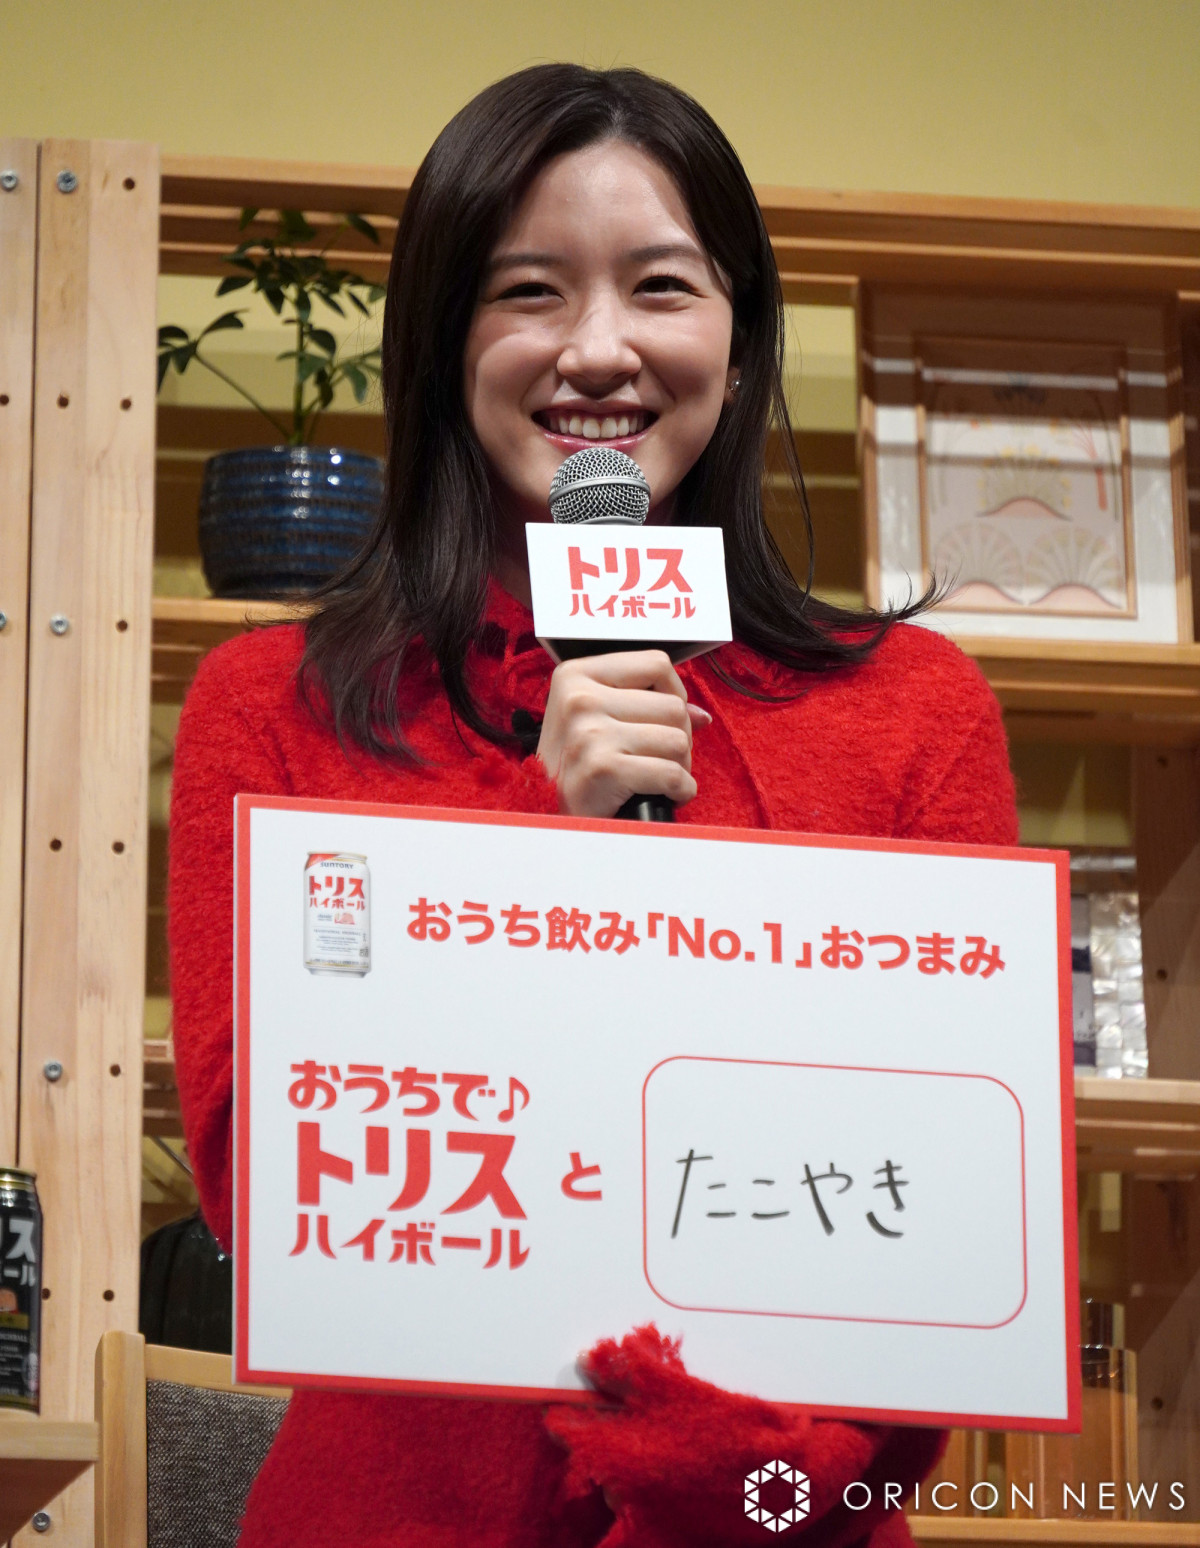 トリス
ハイボール
SUNTORY
トリス
ハイボール
おうち飲み「No.1」おつまみ
おうちで♪
トリス
ハイボール
と
たこやき
ORICON NEWS